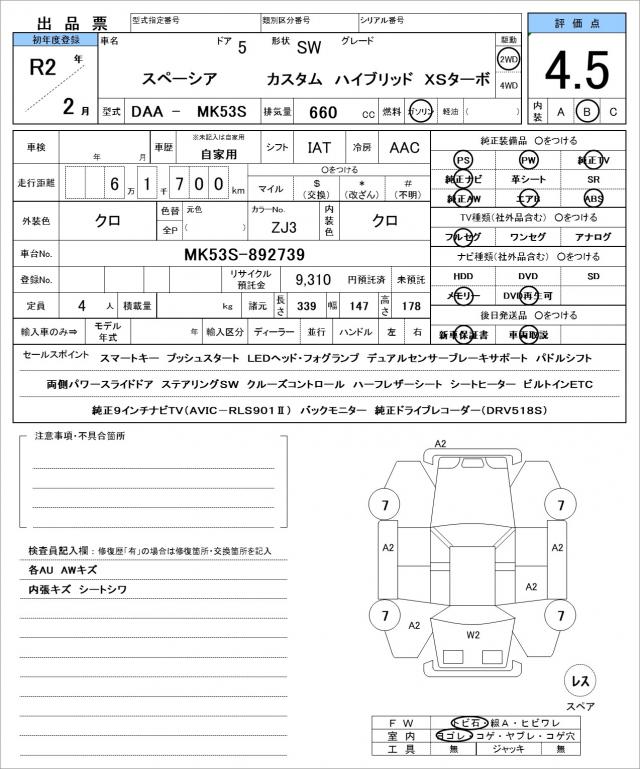 出品票 型式指定番号 類別区分番号 シリアル番号 評価点
初年度登録 車名 ドア 5 形状 SW グレード 駆動
R2 年 2 月
スペーシア カスタム ハイブリッド XSターボ 2WD 4WD 4.5
型式 DAA - MK53S 排気量 660 cc 燃料 ガソリン 軽油 ( ) 内装 A B C
車検 年 月 車歴 ※未記入は自家用 自家用 シフト IAT 冷房 AAC 純正装備品 〇をつける
PS PW 純正TV
走行距離 6 万 1 千 7 0 0 km マイル 〇をつける $ (交換) * (改ざん) # (不明) 純正ナビ 革シート SR
純正AW エアB ABS
外装色 クロ 色替 元色 全P ( ) カラーNo. ZJ3 内装色 クロ TV種類(社外品含む) 〇をつける
フルセグ ワンセグ アナログ
車台No. MK53S-892739 ナビ種類(社外品含む) 〇をつける
登録No. リサイクル預託金 9,310 円預託済 未預託 HDD DVD SD
メモリー DVD再生可
定員 4 人 積載量 kg 諸元 長さ 339 幅 147 高さ 178 後日発送品 〇をつける
輸入車のみ⇒ モデル年式 年 輸入区分 ディーラー 並行 ハンドル 左 右 新車保証書 車両取説
セールスポイント スマートキー プッシュスタート LEDヘッド・フォグランプ デュアルセンサーブレーキサポート パドルシフト
両側パワースライドドア ステアリングSW クルーズコントロール ハーフレザーシート シートヒーター ビルトインETC
純正9インチナビTV(AVIC-RLS901Ⅱ) バックモニター 純正ドライブレコーダー(DRV518S)
注意事項・不具合箇所
検査員記入欄：修復歴「有」の場合は修復箇所・交換箇所を記入
各AU AWキズ
内張キズ シートシワ
A2
7 7
A2 A2
A2
7 7
A2
W2
レス
スペア
FW トビ石・線A・ヒビワレ
室内 ヨゴレ・コゲ・ヤブレ・コゲ穴
工具 無 ジャッキ 無